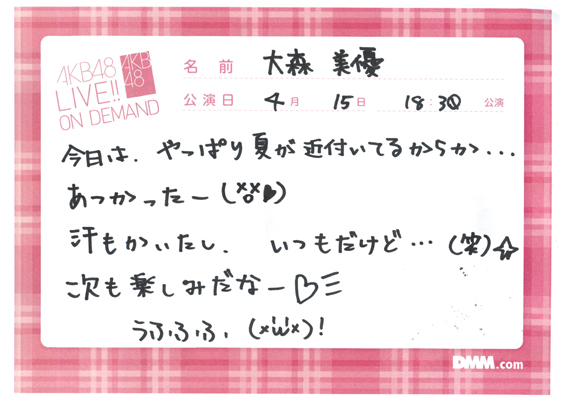 AKB48
LIVE!!
ON DEMAND
AKB
48
名前 大森 美優
公演日 4月 15日 18:30 公演
今日は、やっぱり夏が近付いてるからか...
あつかったー(××)
汗もかいたし、いつもだけど…(笑)☆
次も楽しみだなー♡三
うふふふ、(×'ω'×)!
DMM.com